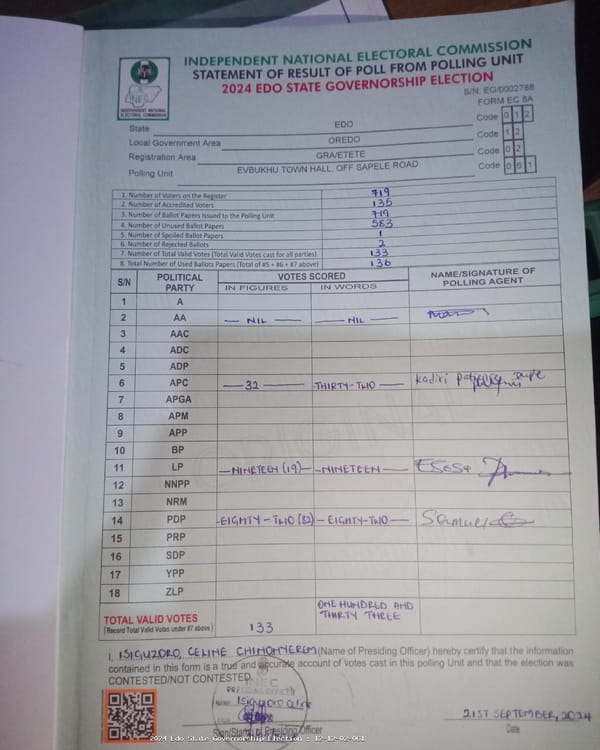 INDEPENDENT NATIONAL ELECTORAL COMMISSION
STATEMENT OF RESULT OF POLL FROM POLLING UNIT
2024 EDO STATE GOVERNORSHIP ELECTION
INDEPENDENT NATIONAL ELECTORAL COMMISSION
S/N: EG/0002788
FORM EC 8A
State EDO Code 0 1 2
Local Government Area OREDO Code 1 2
Registration Area GRA/ETETE Code 0 2
Polling Unit EVBUKHU TOWN HALL, OFF SAPELE ROAD Code 0 6 1
1. Number of Voters on the Register 719
2. Number of Accredited Voters 135
3. Number of Ballot Papers Issued to the Polling Unit 719
4. Number of Unused Ballot Papers 583
5. Number of Spoiled Ballot Papers 1
6. Number of Rejected Ballots 2
7. Number of Total Valid Votes (Total Valid Votes cast for all parties) 133
8. Total Number of Used Ballots Papers (Total of #5 + #6 + #7 above) 136
S/N POLITICAL PARTY VOTES SCORED NAME/SIGNATURE OF POLLING AGENT
IN FIGURES IN WORDS
1 A
2 AA — NIL — — NIL —
3 AAC
4 ADC
5 ADP
6 APC — 32 — THIRTY-TWO — Kadiri
7 APGA
8 APM
9 APP
10 BP
11 LP — NINETEEN (19) — NINETEEN — ESOSA
12 NNPP
13 NRM
14 PDP - EIGHTY-TWO (82) - EIGHTY-TWO — Samuel
15 PRP
16 SDP
17 YPP
18 ZLP
TOTAL VALID VOTES
(Record Total Valid Votes under #7 above) 133 ONE HUNDRED AND THIRTY THREE
I, ISIGUZORO, CELINE CHINONYEREM (Name of Presiding Officer) hereby certify that the information
contained in this form is a true and accurate account of votes cast in this polling Unit and that the election was
CONTESTED/NOT CONTESTED.
INEC
PRESIDING OFFICER
Isiguzoro
21ST SEPTEMBER, 2024
Sign/Stamp of Presiding Officer Date
2024 Edo State Governorship Election - 12-12-02-061